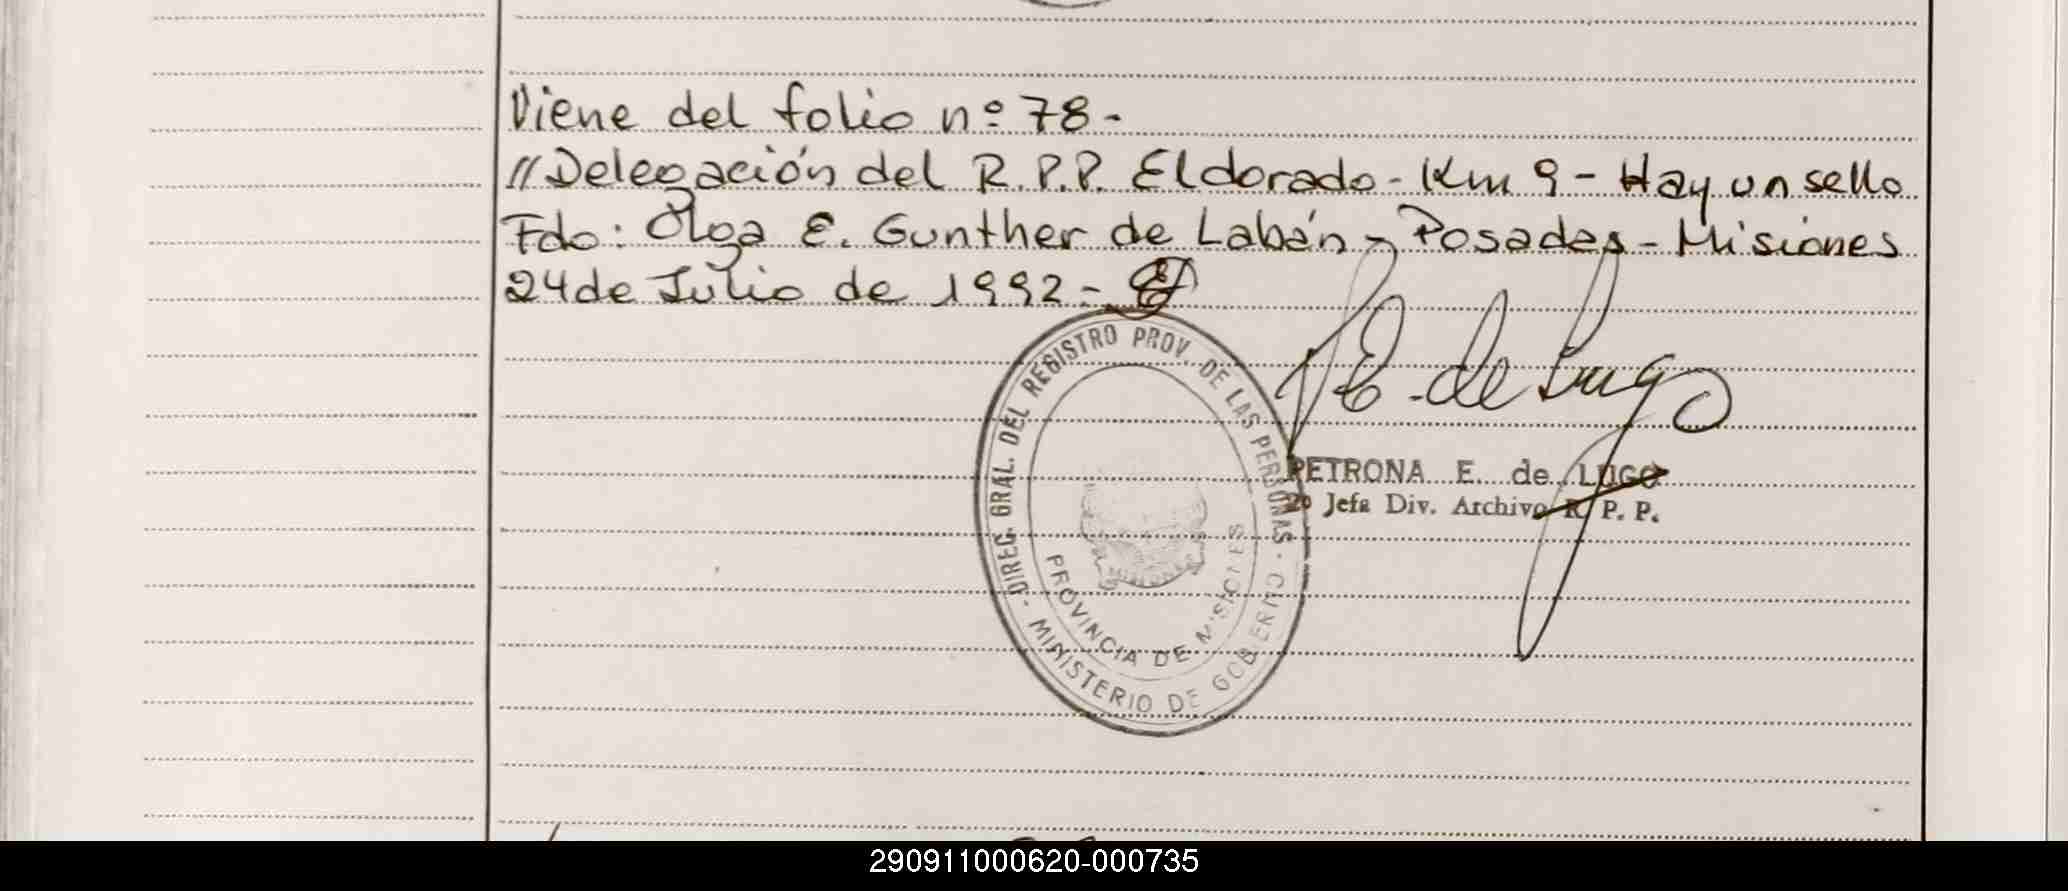 Viene del folio nº 78-
//Delegación del R.P.P. Eldorado - Km 9 - Hay un sello
Fdo: Olga E. Gunther de Labán - Posadas - Misiones
24 de Julio de 1992-
DIREC. GRAL. DEL REGISTRO PROV. DE LAS PERSONAS
P E. de Lugo
PETRONA E. de LUGO
Jefa Div. Archivo R. P. P.
MISIONES
PROVINCIA DE MISIONES
MINISTERIO DE GOBIERNO
290911000620-000735